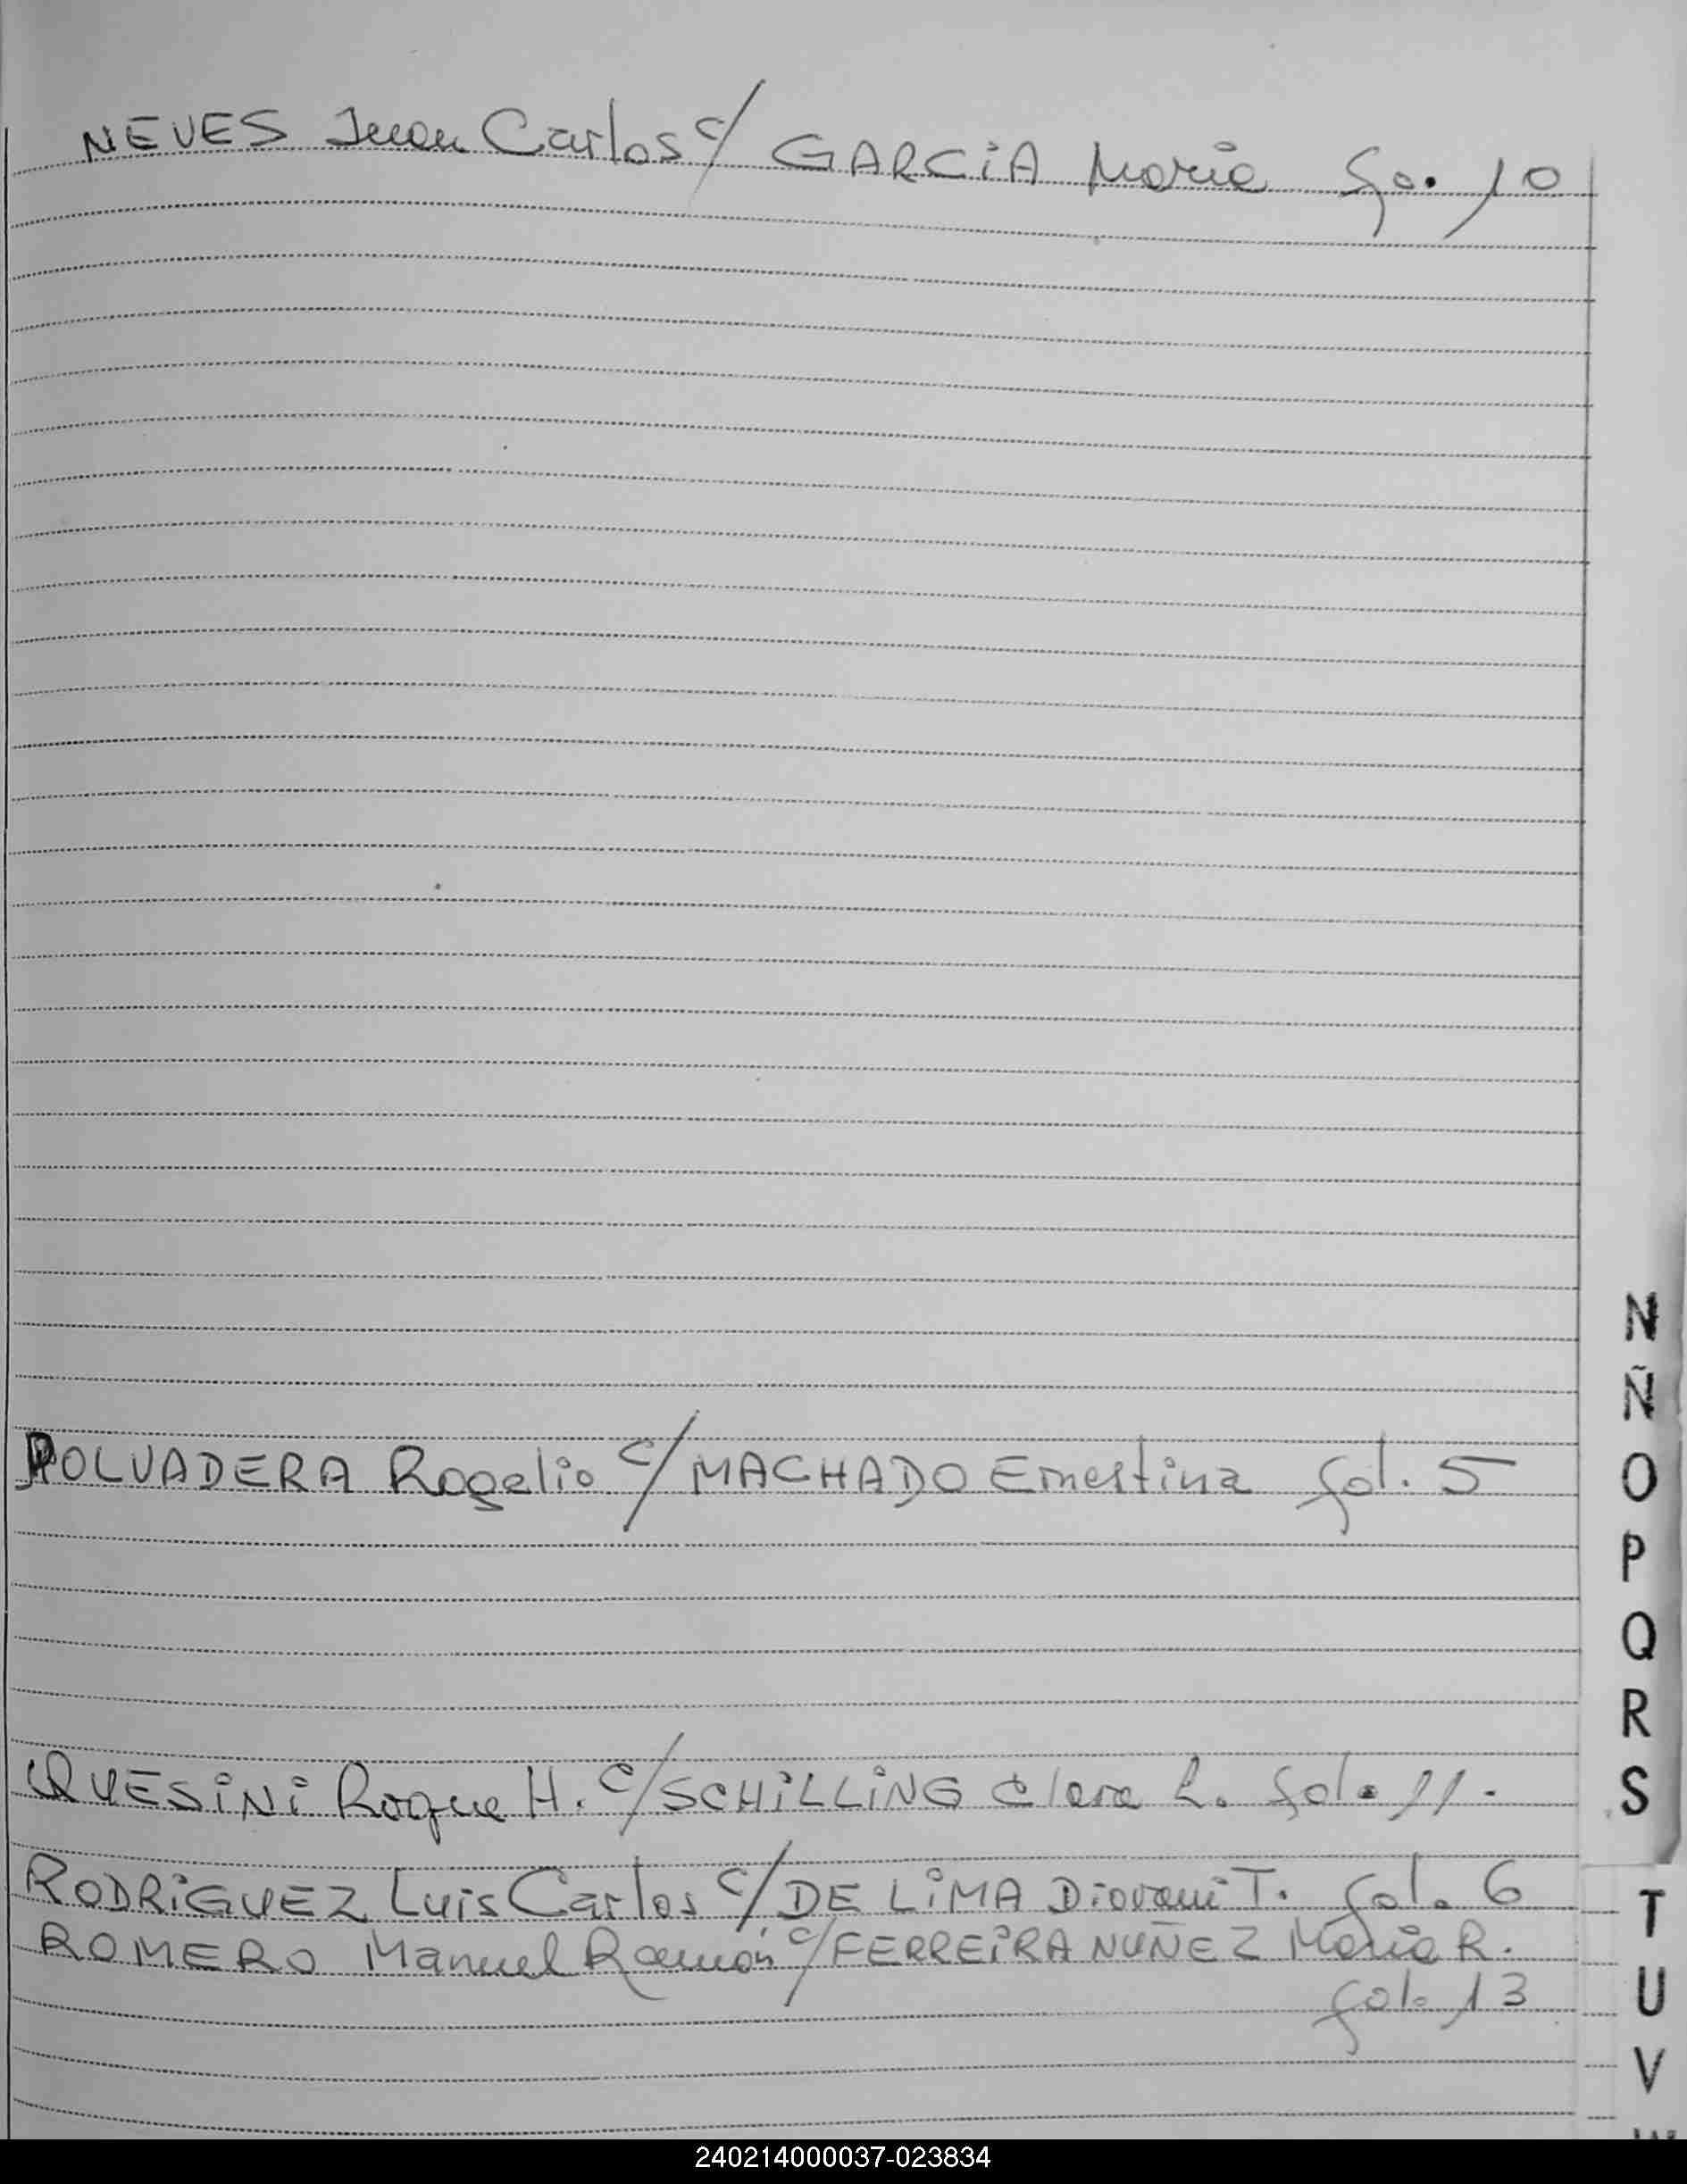 NEVES Juan Carlos c/ GARCiA Maria fo. 10
POLVADERA Rogelio c/ MACHADO Ernestina fol. 5
QUESiNi Roque H. c/ SCHiLLiNG Clara L. fol. 11.
RODRiGUEZ Luis Carlos c/ DE LiMA Diovani T. fol. 6
ROMERO Manuel Ramón c/ FERREiRA NUÑEZ Maria R.
fol. 13
N
Ñ
O
P
Q
R
S
T
U
V
240214000037-023834